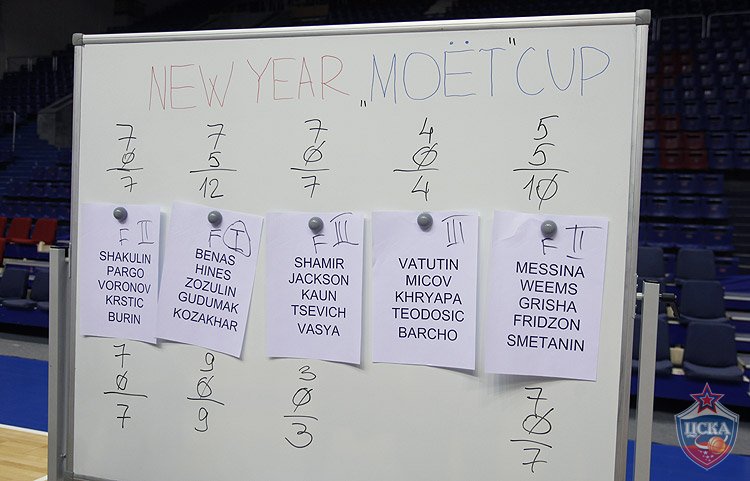 NEW YEAR „MOЁT" CUP
7 7 7 4 5
0 5 0 0 5
7 12 7 4 10
F II
SHAKULIN
PARGO
VORONOV
KRSTIC
BURIN
F I
BENAS
HINES
ZOZULIN
GUDUMAK
KOZAKHAR
F III
SHAMIR
JACKSON
KAUN
TSEVICH
VASYA
III
VATUTIN
MICOV
KHRYAPA
TEODOSIC
BARCHO
F II
MESSINA
WEEMS
GRISHA
FRIDZON
SMETANIN
7 9 3 7
0 0 0 0
7 9 3 7
ЦСКА